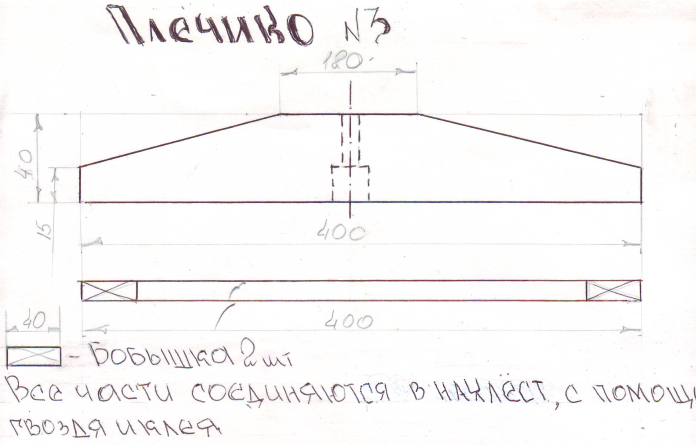 Плечико №3
180
40
15
400
400
40
- Бобышка 2 шт
Все части соединяются в нахлёст, с помощи
гвоздя и клея